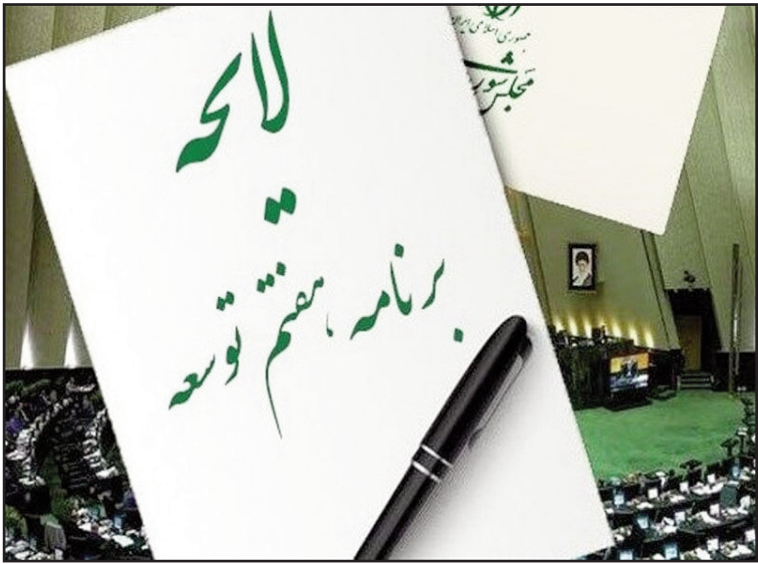 لایحه
برنامه هفتم توسعه
جمهوری اسلامی ایران
مجلس شور